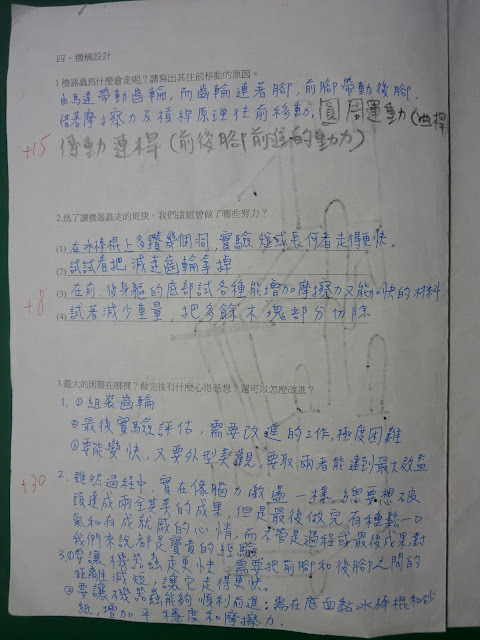 四、機構設計
1.機器蟲為什麼會走呢？請寫出其往前移動的原因。
由馬達帶動齒輪，而齒輪連著腳，前腳帶動後腳，
借著摩擦力及槓桿原理往前移動，圓周運動(曲桿
+15
傳動連桿(前後腳前進的動力)
2.為了讓機器蟲走的更快，我們這組曾做了哪些努力？
(1) 在冰棒棍上多鑽幾個洞，實驗短或長何者走得更快。
(2) 試試看把減速齒輪拿掉
(3) 在前、後身軀的底部試各種能增加摩擦力又能加快的材料
+8
(4) 試著減少重量，把多餘木塊部分切除
3.最大的困難在哪裡？做完後有什麼心得感想？還可以怎麼改進？
1. ①組裝齒輪
②最後實驗評估，需要改進的工作，極度困難
③要能變快，又要外型美觀，要取兩者能達到最大效益
+30
2. 雖然過程中，實在像腦力激盪一樣，總要想破
頭達成兩全其美的成果，但是最後做完有種鬆一口
氣和有成就感的心情，而不管是過程或最後成果對
我們來說都是寶貴的經驗
3.①要讓機器蟲走更快：需要把前腳和後腳之間的
距離減短，讓它走得更快。
②要讓機器蟲能夠順利前進：需在底面黏冰棒棍和砂
紙，增加平穩度和摩擦力.